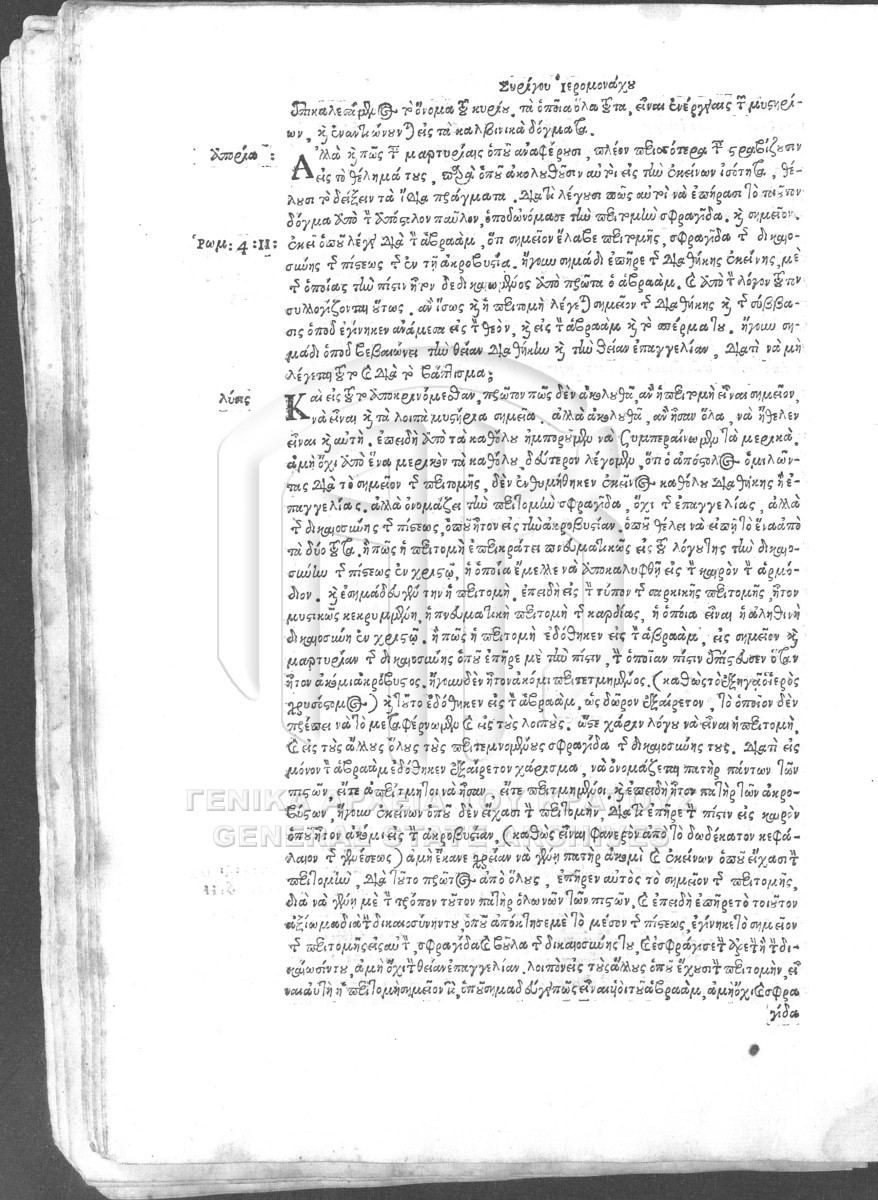 Συρίγου Ἱερομονάχου
ἐπικαλεσάμενος τὸ ὄνομα τοῦ κυρίου. τὰ ὁποῖα ὅλα τοῦτα, εἶναι ἐνέργειαις τῶν μυστηρί-
ων, καὶ ἐναντιώνουνται εἰς τὰ καλβινικὰ δόγματα.
Ἀπορία :
Ἀλλὰ καὶ πῶς ταῖς μαρτυρίαις ὁποῦ ἀναφέρουσι, πλέον περισσότερα ταῖς στραβίζουσιν
εἰς τὸ θέλημά τους, παρὰ ὁποῦ ἀκολουθοῦσιν αὐτοὶ εἰς τὴν ἐκείνων ἰσότητα, θέ-
λουσι τὸ δείξειν τὰ ἴδια πράγματα. διατὶ λέγουσι πῶς αὐτοὶ νὰ ἐπήρασι τὸ τοιοῦτον
δόγμα ἀπὸ τὸν ἀπόστολον παῦλον, ὁποῦ ὠνόμασε τὴν περιτομὴν σφραγίδα. καὶ σημεῖον.
Ῥωμ: 4:11:
ἐκεῖ ὁποῦ λέγει διὰ τὸν ἀβραὰμ, ὅτι σημεῖον ἔλαβε περιτομῆς, σφραγίδα τῆς δικαιο-
σύνης τῆς πίστεως τῆς ἐν τῇ ἀκροβυστίᾳ. ἤγουν σημάδι ἐπῆρε τῆς διαθήκης ἐκείνης, μὲ
τῆς ὁποίας τὴν πίστιν ἦτον δεδικαιωμένος ἀπὸ πρῶτα ὁ ἀβραάμ. καὶ ἀπὸ τὸν λόγον τοῦτον
συλλογίζονται οὕτως. ἂν ἴσως καὶ ἡ περιτομὴ λέγεται σημεῖον τῆς διαθήκης καὶ τῆς σύμβα-
σις ὁποῦ ἐγίνηκεν ἀνάμεσα εἰς τὸν θεὸν, καὶ εἰς τὸν ἀβραὰμ καὶ τὸ σπέρμα του. ἤγουν ση-
μάδι ὁποῦ βεβαιώνει τὴν θείαν διαθήκην καὶ τὴν θείαν ἐπαγγελίαν, διατὶ νὰ μὴ
λέγεται τοῦτο καὶ διὰ τὸ βάπτισμα;
λύσις
Καὶ εἰς τοῦτο ἀποκρινόμεσθαν, πρῶτον πῶς δὲν ἀκολουθᾷ, ἂν ἡ περιτομὴ εἶναι σημεῖον,
νὰ εἶναι καὶ τὰ λοιπὰ μυστήρια σημεῖα. ἀλλὰ ἀκολουθᾷ, ἂν ἦσαν ὅλα, νὰ ἤθελεν
εἶναι καὶ αὐτή. ἐπειδὴ ἀπὸ τὰ καθόλου ἠμποροῦμεν νὰ συμπεραίνωμεν τὰ μερικά.
ἀμὴ ὄχι ἀπὸ ἕνα μερικὸν τὰ καθόλου, δεύτερον λέγομεν, ὅτι ὁ ἀπόστολος ὁμιλῶν-
τας διὰ τὸ σημεῖον τῆς περιτομῆς, δὲν ἐνθυμήθηκεν ἐκεῖνος καθόλου διαθήκης ἢ ἐ-
παγγελίας. ἀλλὰ ὀνομάζει τὴν περιτομὴν σφραγίδα, ὄχι τῆς ἐπαγγελίας, ἀλλὰ
τῆς δικαιοσύνης τῆς πίστεως, ὁποῦ ἦτον εἰς τὴν ἀκροβυστίαν. ὁποῦ θέλει νὰ εἰπῇ τὸ ἕνα ἀπὸ
τὰ δύο τοῦτα. ἢ πῶς ἡ περιτομὴ ἐπεκράτει πνευματικῶς εἰς τοῦ λόγου της τὴν δικαιο-
σύνην τῆς πίστεως ἐν χριστῷ, ἡ ὁποία ἔμελλε νὰ ἀποκαλυφθῇ εἰς τὸν καιρὸν τὸν ἁρμό-
διον. καὶ ἐσημάδευγέν την ἡ περιτομή. ἐπειδὴ εἰς τὸν τύπον τῆς σαρκικῆς περιτομῆς, ἦτον
μυστικῶς κεκρυμμένη, ἡ πνευματικὴ περιτομὴ τῆς καρδίας, ἡ ὁποία εἶναι ἡ ἀληθινὴ
δικαιοσύνη ἐν χριστῷ. ἢ πῶς ἡ περιτομὴ ἐδόθηκεν εἰς τὸν ἀβραὰμ, εἰς σημεῖον καὶ
μαρτυρίαν τῆς δικαιοσύνης ὁποῦ ἐπῆρε μὲ τὴν πίστιν, τὴν ὁποίαν πίστιν ἐπίστευσεν ὅταν
ἦτον ἀκόμι ἀκρόβυστος. ἤγουν δὲν ἦτον ἀκόμι περιτετμημένος. (καθὼς τὸ ἐξηγᾷ ὁ ἱερὸς
χρυσόστομος) καὶ τοῦτο ἐδόθηκεν εἰς τὸν ἀβραὰμ, ὡς δῶρον ἐξαίρετον, τὸ ὁποῖον δὲν
πρέπει νὰ τὸ μεταφέρνωμεν καὶ εἰς τοὺς λοιποὺς. ὥστε χάριν λόγου νὰ εἶναι ἡ περιτομὴ,
καὶ εἰς τοὺς ἄλλους ὅλους τοὺς περιτεμνομένους σφραγίδα τῆς δικαιοσύνης τους. διατὶ εἰς
μόνον τὸν ἀβραὰμ ἐδόθηκεν ἐξαίρετον χάρισμα, νὰ ὀνομάζεται πατὴρ πάντων τῶν
πιστῶν, εἴτε ἀπερίτμητοι νὰ ἦσαν, εἴτε περιτμημένοι. καὶ ἐπειδὴ ἦτον πατὴρ τῶν ἀκρο-
βύστων, ἤγουν ἐκείνων ὁποῦ δὲν εἴχασι τὴν περιτομὴν, διατὶ ἐπῆρε τὴν πίστιν εἰς καιρὸν
ὁποῦ ἦτον ἀκόμι εἰς τὴν ἀκροβυστίαν, (καθὼς εἶναι φανερὸν ἀπὸ τὸ δωδέκατον κεφά-
λαιον τῆς γενέσεως) ἀμὴ ἔκανε χρείαν νὰ γένῃ πατὴρ ἀκόμι καὶ ἐκείνων ὁποῦ εἴχασι τὴν
περιτομὴν, διὰ τοῦτο πρῶτος ἀπὸ ὅλους, ἐπῆρεν αὐτὸς τὸ σημεῖον τῆς περιτομῆς,
διὰ νὰ γένῃ μὲ τὸν τρόπον τοῦτον πατὴρ ὁλωνῶν τῶν πιστῶν, καὶ ἐπειδὴ ἐπῆρε τὸ τοιοῦτον
ἀξίωμα διὰ τὴν δικαιοσύνην του, ὁποῦ ἀπόκτησε μὲ τὸ μέσον τῆς πίστεως, ἐγίνηκε τὸ σημεῖον
τῆς περιτομῆς εἰς αὐτὸν, σφραγίδα καὶ βοῦλα τῆς δικαιοσύνης του, καὶ ἐσφράγισε τὴν ἀρετὴν τὴν δι-
καίωσίν του, ἀμὴ ὄχι τὴν θείαν ἐπαγγελίαν. λοιπὸν εἰς τοὺς ἄλλους ὁποῦ ἔχουσι τὴν περιτομὴν, εἶ-
ναι αὐτὴ ἡ περιτομὴ σημεῖον, ὁποῦ σημαδεύγει πῶς εἶναι υἱοὶ τοῦ ἀβραὰμ, ἀμὴ ὄχι καὶ σφρα
γίδα
ΓΕΝΙΚΑ ΑΡΧΕΙΑ ΤΟΥ ΚΡΑΤΟΥΣ
GENERAL STATE ARCHIVES